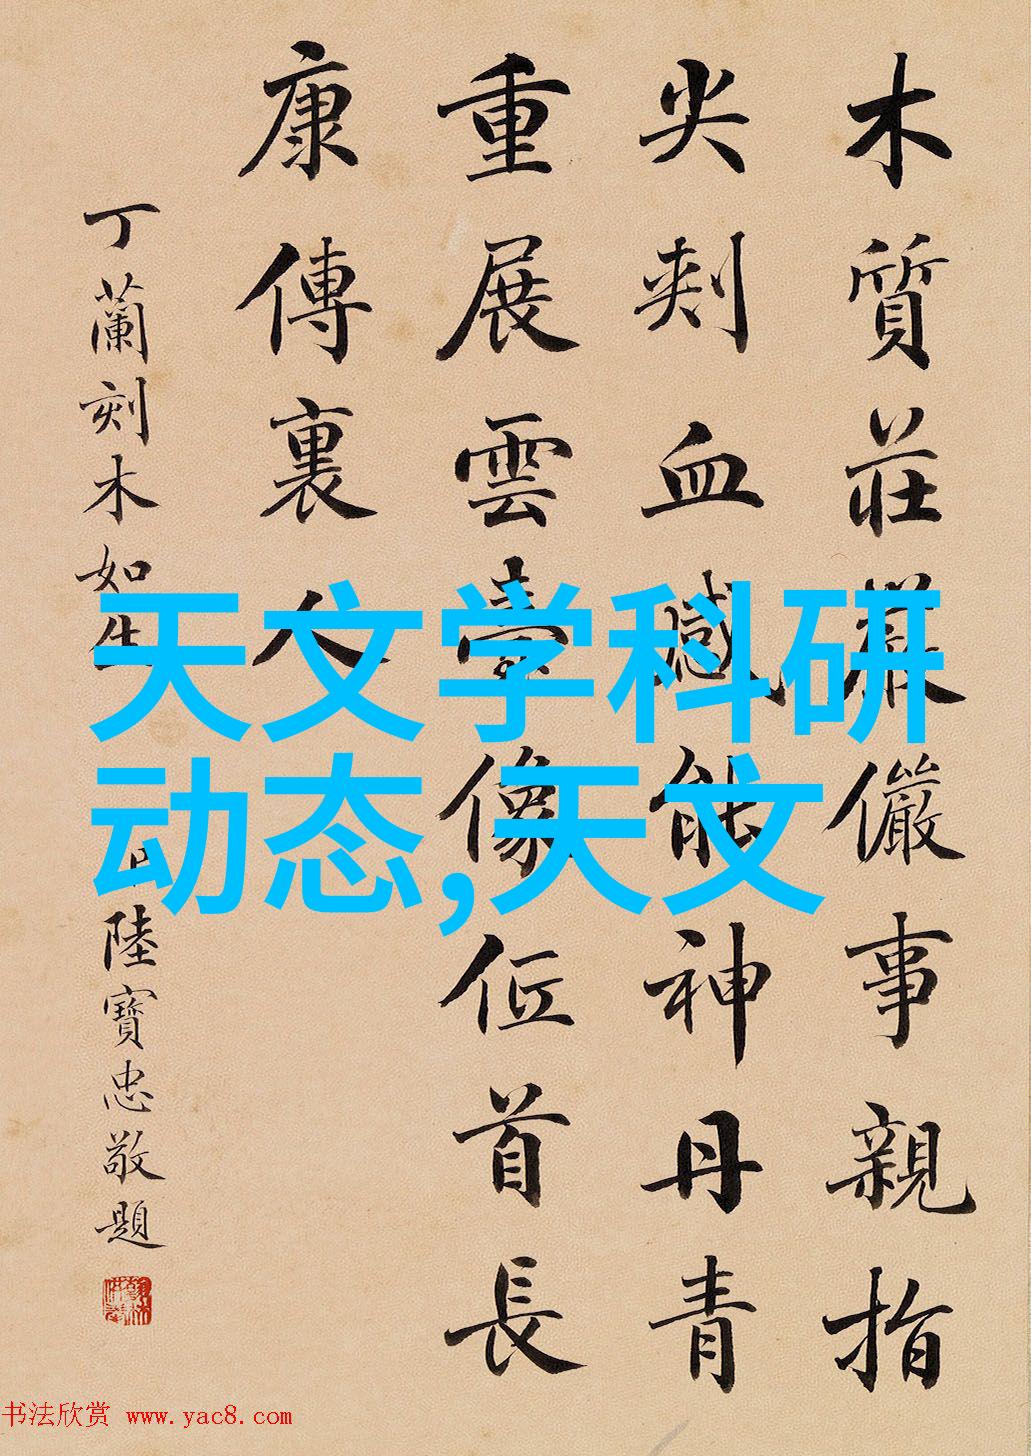 木質莊嚴儼事親指
尖刾血感能神丹青
重展雲臺像位首長
康傳裏人
丁蘭刻木如生
陸寶忠敬題
天文学科研
动态,天文
书法欣赏 www.yac8.com